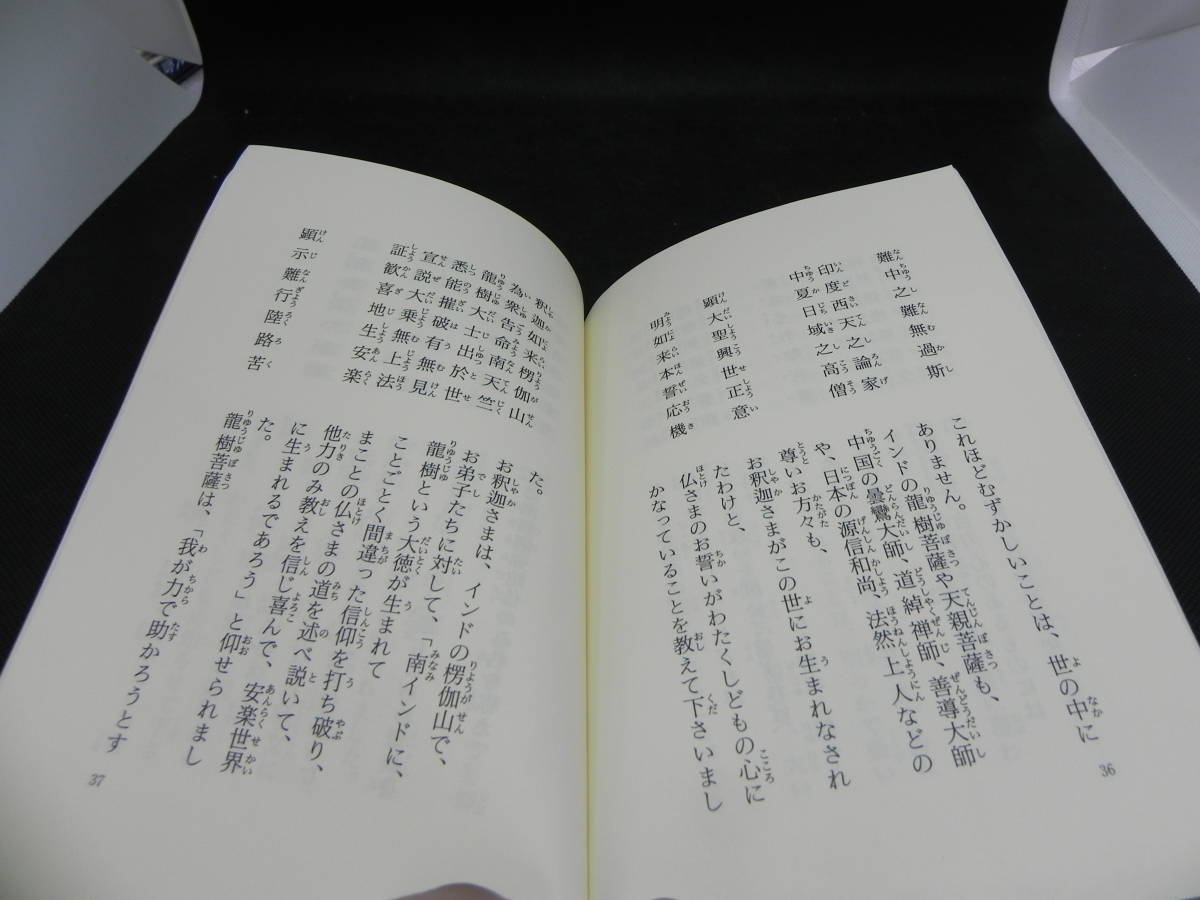 難中之難無過斯
印度西天之論家
中夏日域之高僧
顕大聖興世正意
明如来本誓応機
これほどむずかしいことは、世の中に
ありません。
インドの龍樹菩薩や天親菩薩も、
中国の曇鸞大師、道綽禅師、善導大師
や、日本の源信和尚、法然上人などの
尊いお方々も、
お釈迦さまがこの世にお生まれなされ
たわけと、
仏さまのお誓いがわたくしどもの心に
かなっていることを教えて下さいまし
36
釈迦如来楞伽山
為衆告命南天竺
龍樹大士出於世
悉能摧破有無見
宣説大乗無上法
証歓喜地生安楽
顕示難行陸路苦
た。
お釈迦さまは、インドの楞伽山で、
お弟子たちに対して、「南インドに、
龍樹という大徳が生まれて
ことごとく間違った信仰を打ち破り、
まことの仏さまの道を述べ説いて、
他力のみ教えを信じ喜んで、安楽世界
に生まれるであろう」と仰せられまし
た。
龍樹菩薩は、「我が力で助かろうとす
37